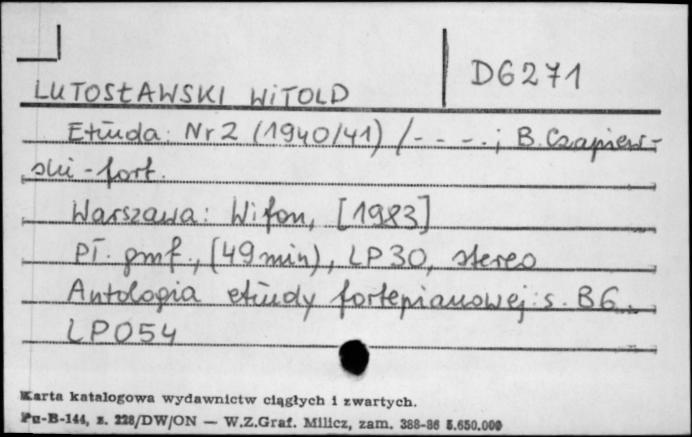 D6271
LUTOSŁAWSKI WITOLD
Etiuda: Nr 2 (1940/41) / - - - -; B. Czapiew-
ski - fort.
Warszawa: Wifon, [1983]
Pł. gmf., (49 min), LP 30, stereo
Antologia etiudy fortepianowej: s. B 6.
LP054
Karta katalogowa wydawnictw ciągłych i zwartych.
Pu-B-144, z. 228/DW/ON — W.Z.Graf. Milicz, zam. 388-86 5.650.000